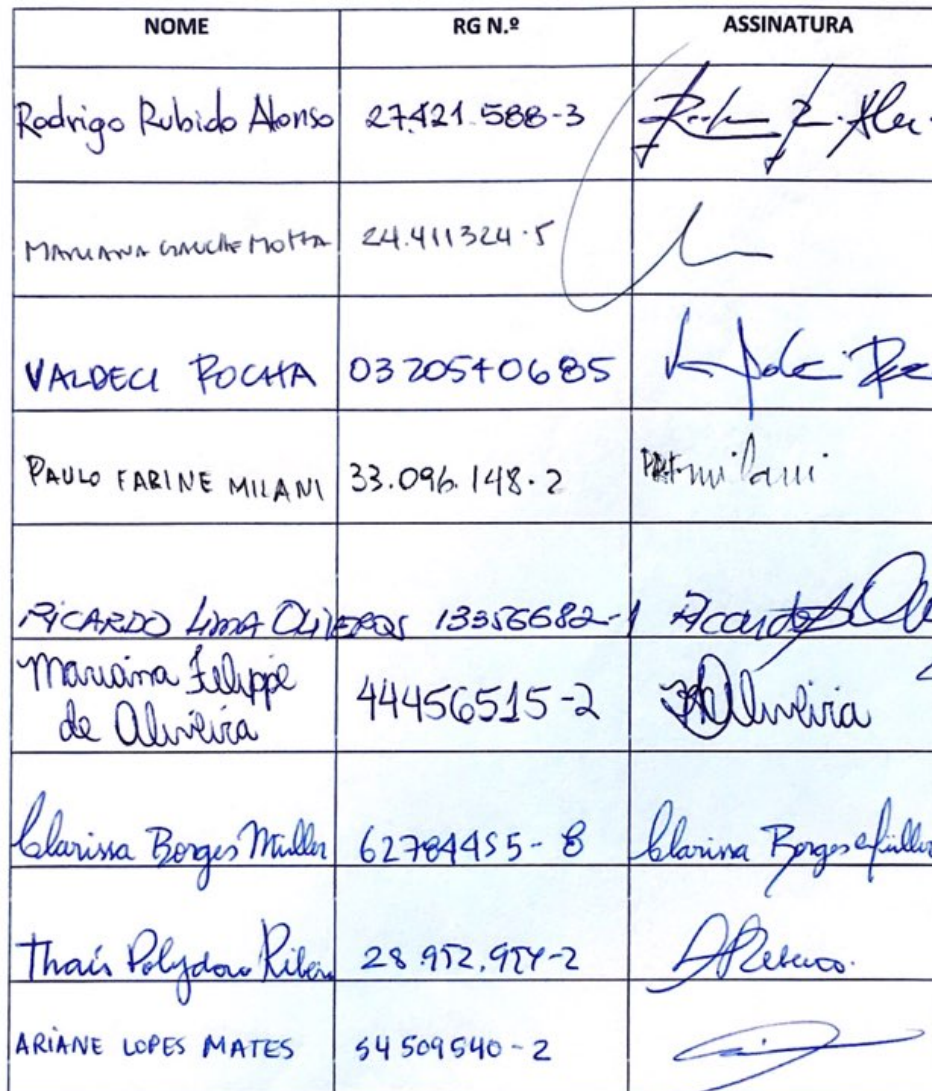 NOME RG N.º ASSINATURA
Rodrigo Rubido Alonso 27.421.588-3
MARIANA GAUCHE MOTTA 24.411324-5
VALDECI ROCHA 03205406685
PAULO FARINE MILANI 33.096.148-2 milani
RICARDO LIMA OLIVEROS 13356682-1 Ricardo
Mariana Felippe
de Oliveira 44456515-2 Oliveira
Clarissa Borges Müller 62784455-8 Clarissa Borges Müller
Thais Polydoro Ribeiro 28.952.954-2
ARIANE LOPES MATES 54509540-2